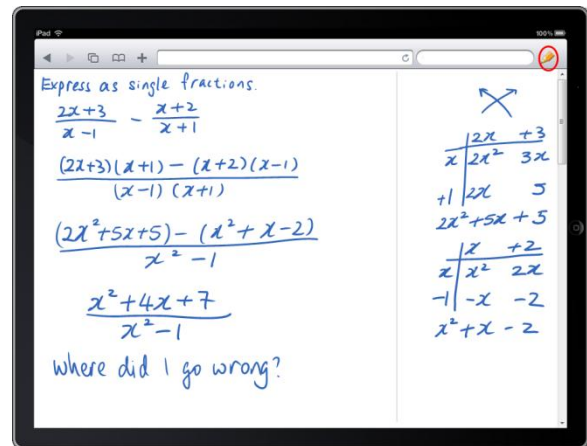 iPad
100%
Express as single fractions.
2x+3 / x-1 - x+2 / x+1
(2x+3)(x+1) - (x+2)(x-1)
(x-1) (x+1)
(2x²+5x+5) - (x²+x-2)
x²-1
x²+4x+7
x²-1
where did I go wrong?
2x +3
x 2x² 3x
+1 2x 5
2x²+5x+5
x +2
x x² 2x
-1 -x -2
x²+x-2